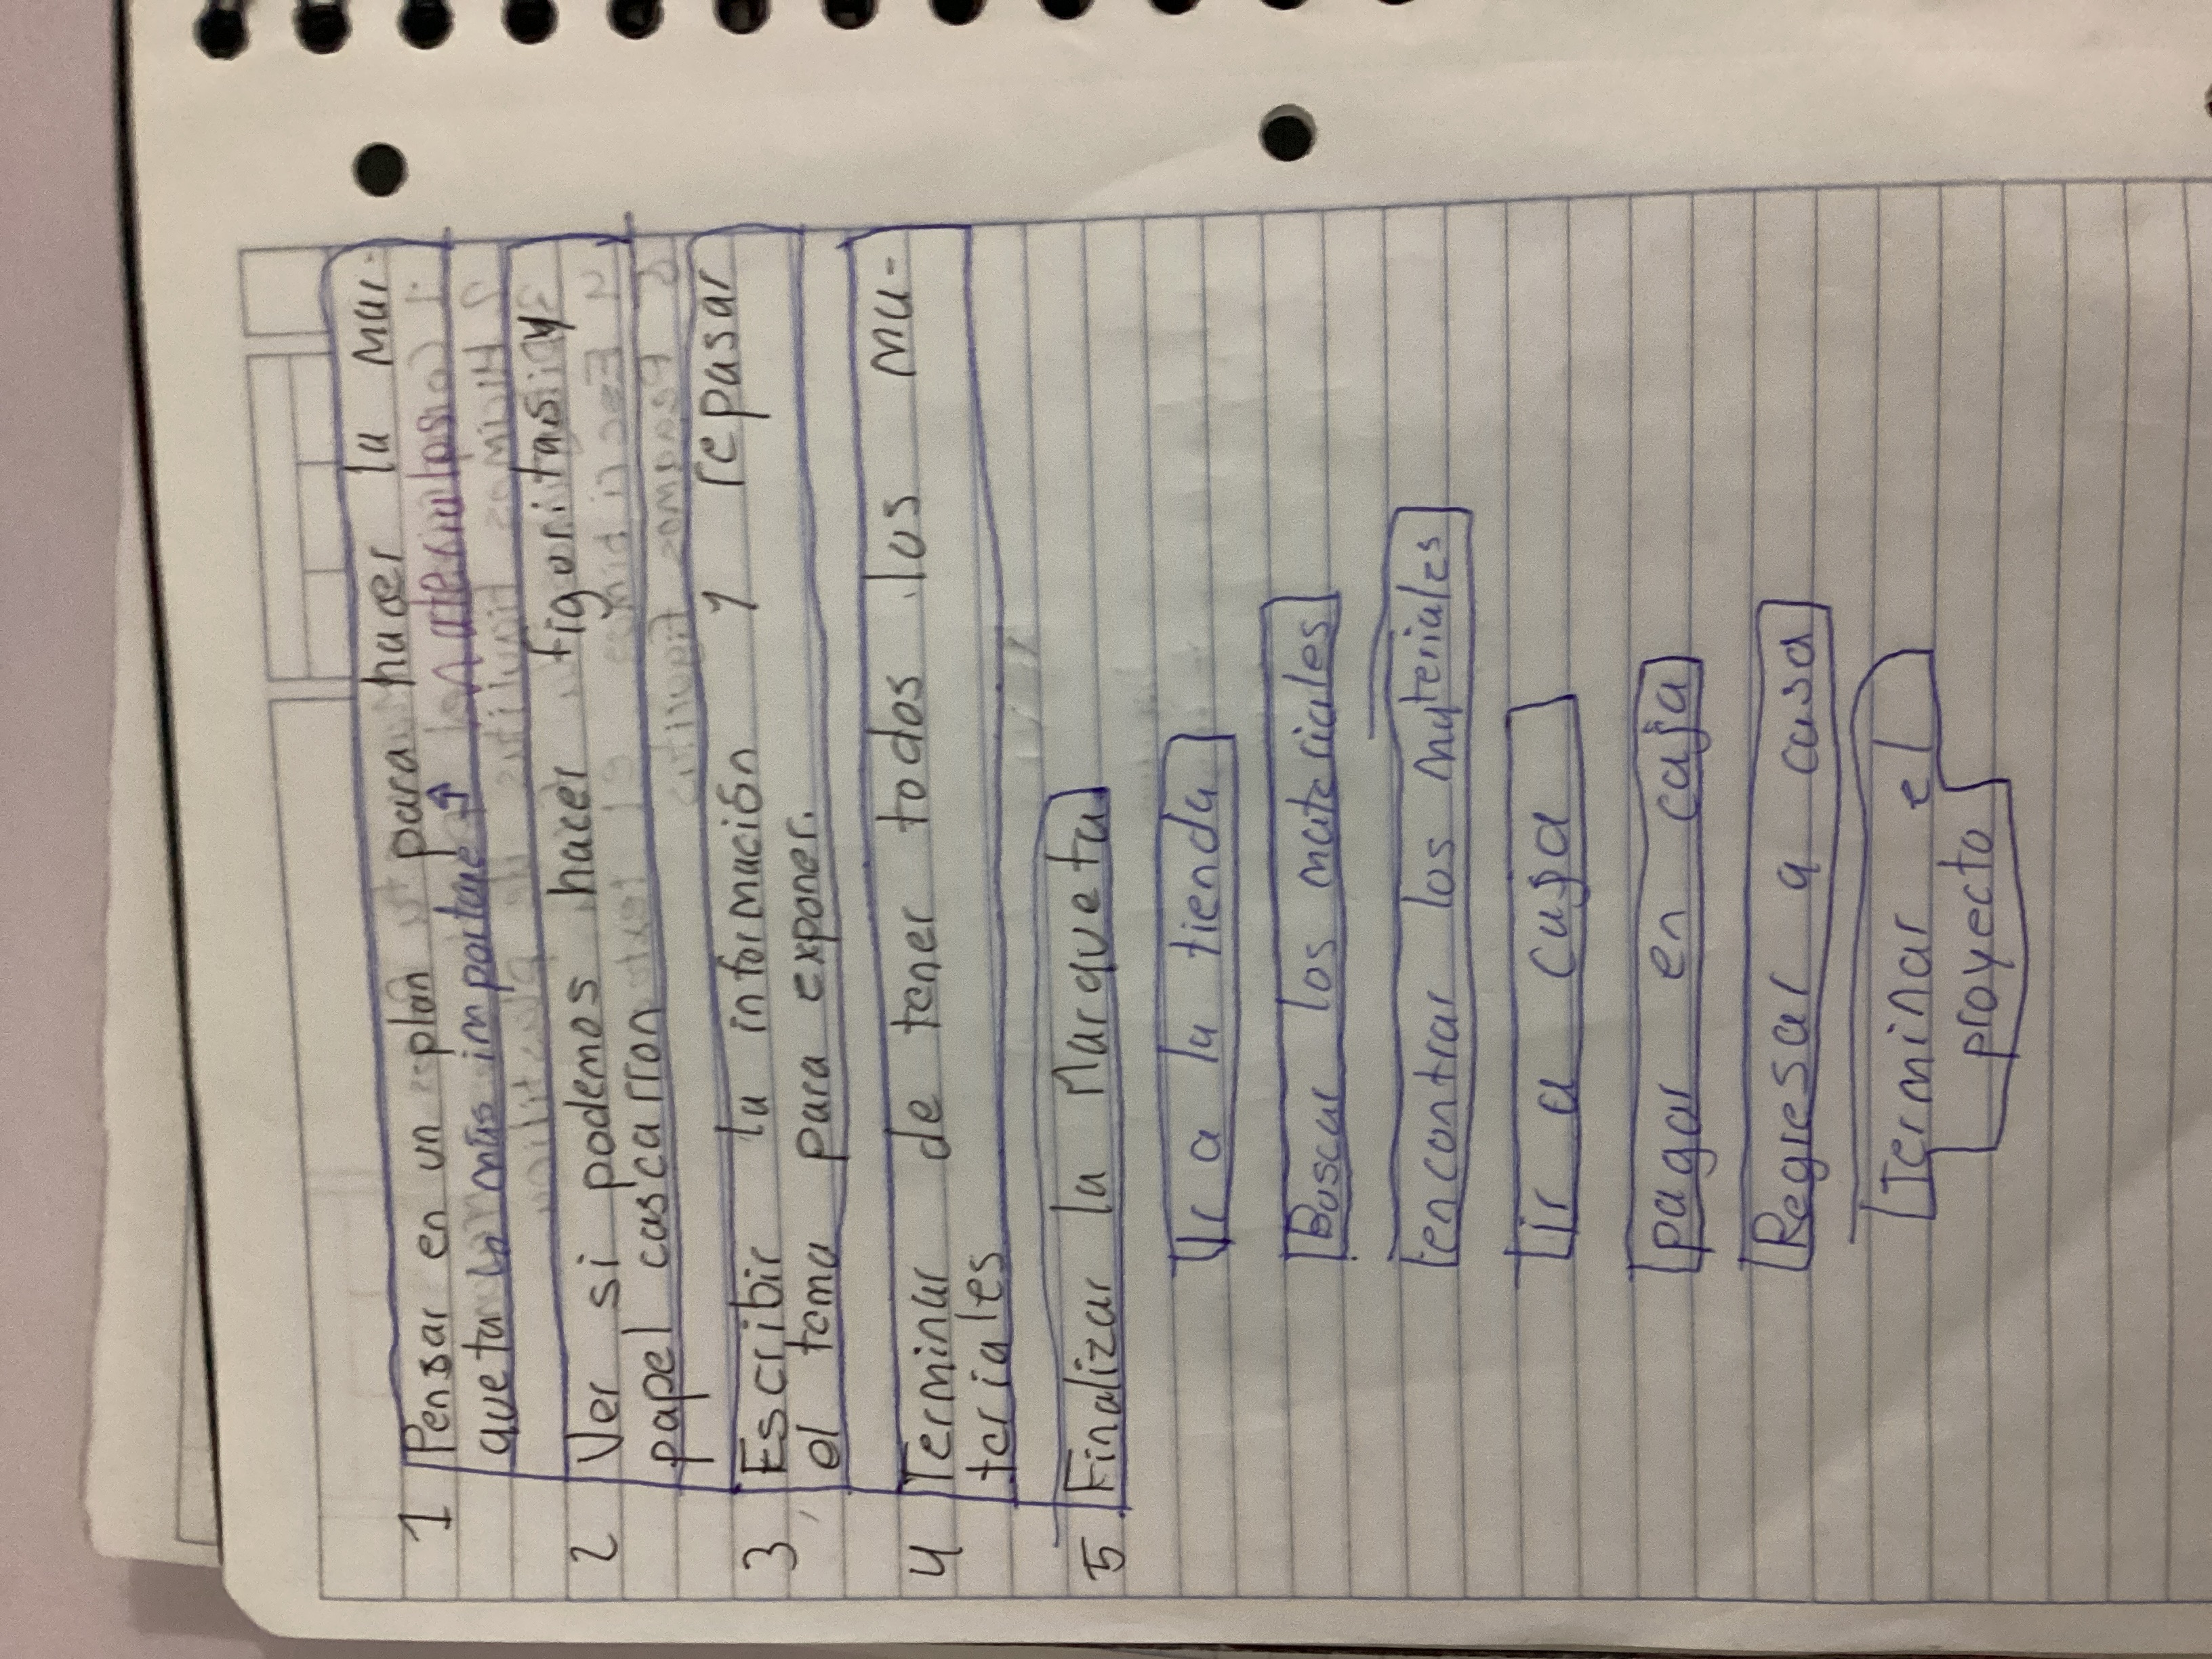 1 Pensar en un plan para hacer la mar-
queta más importante
2 Ver si podemos hacer figuritas y
papel cascarron
3 Escribir la información y repasar
el tema para exponer.
4 Terminar de tener todos los ma-
teriales
5 Finalizar la Marqueta
Ir a la tienda
Buscar los materiales
encontrar los materiales
ir a casa
pagar en caja
Regresar a casa
Terminar el
proyecto